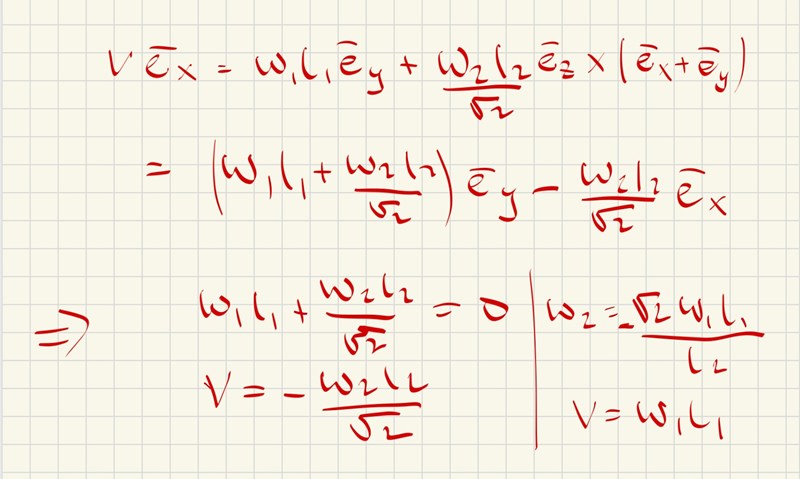 v ē_x = ω₁l₁ē_y + ω₂l₂/√2 ē_z × (ē_x + ē_y)
= (ω₁l₁ + ω₂l₂/√2) ē_y − ω₂l₂/√2 ē_x
⇒ ω₁l₁ + ω₂l₂/√2 = 0 | ω₂ = -√2 ω₁l₁/l₂
v = − ω₂l₂/√2 | v = ω₁l₁